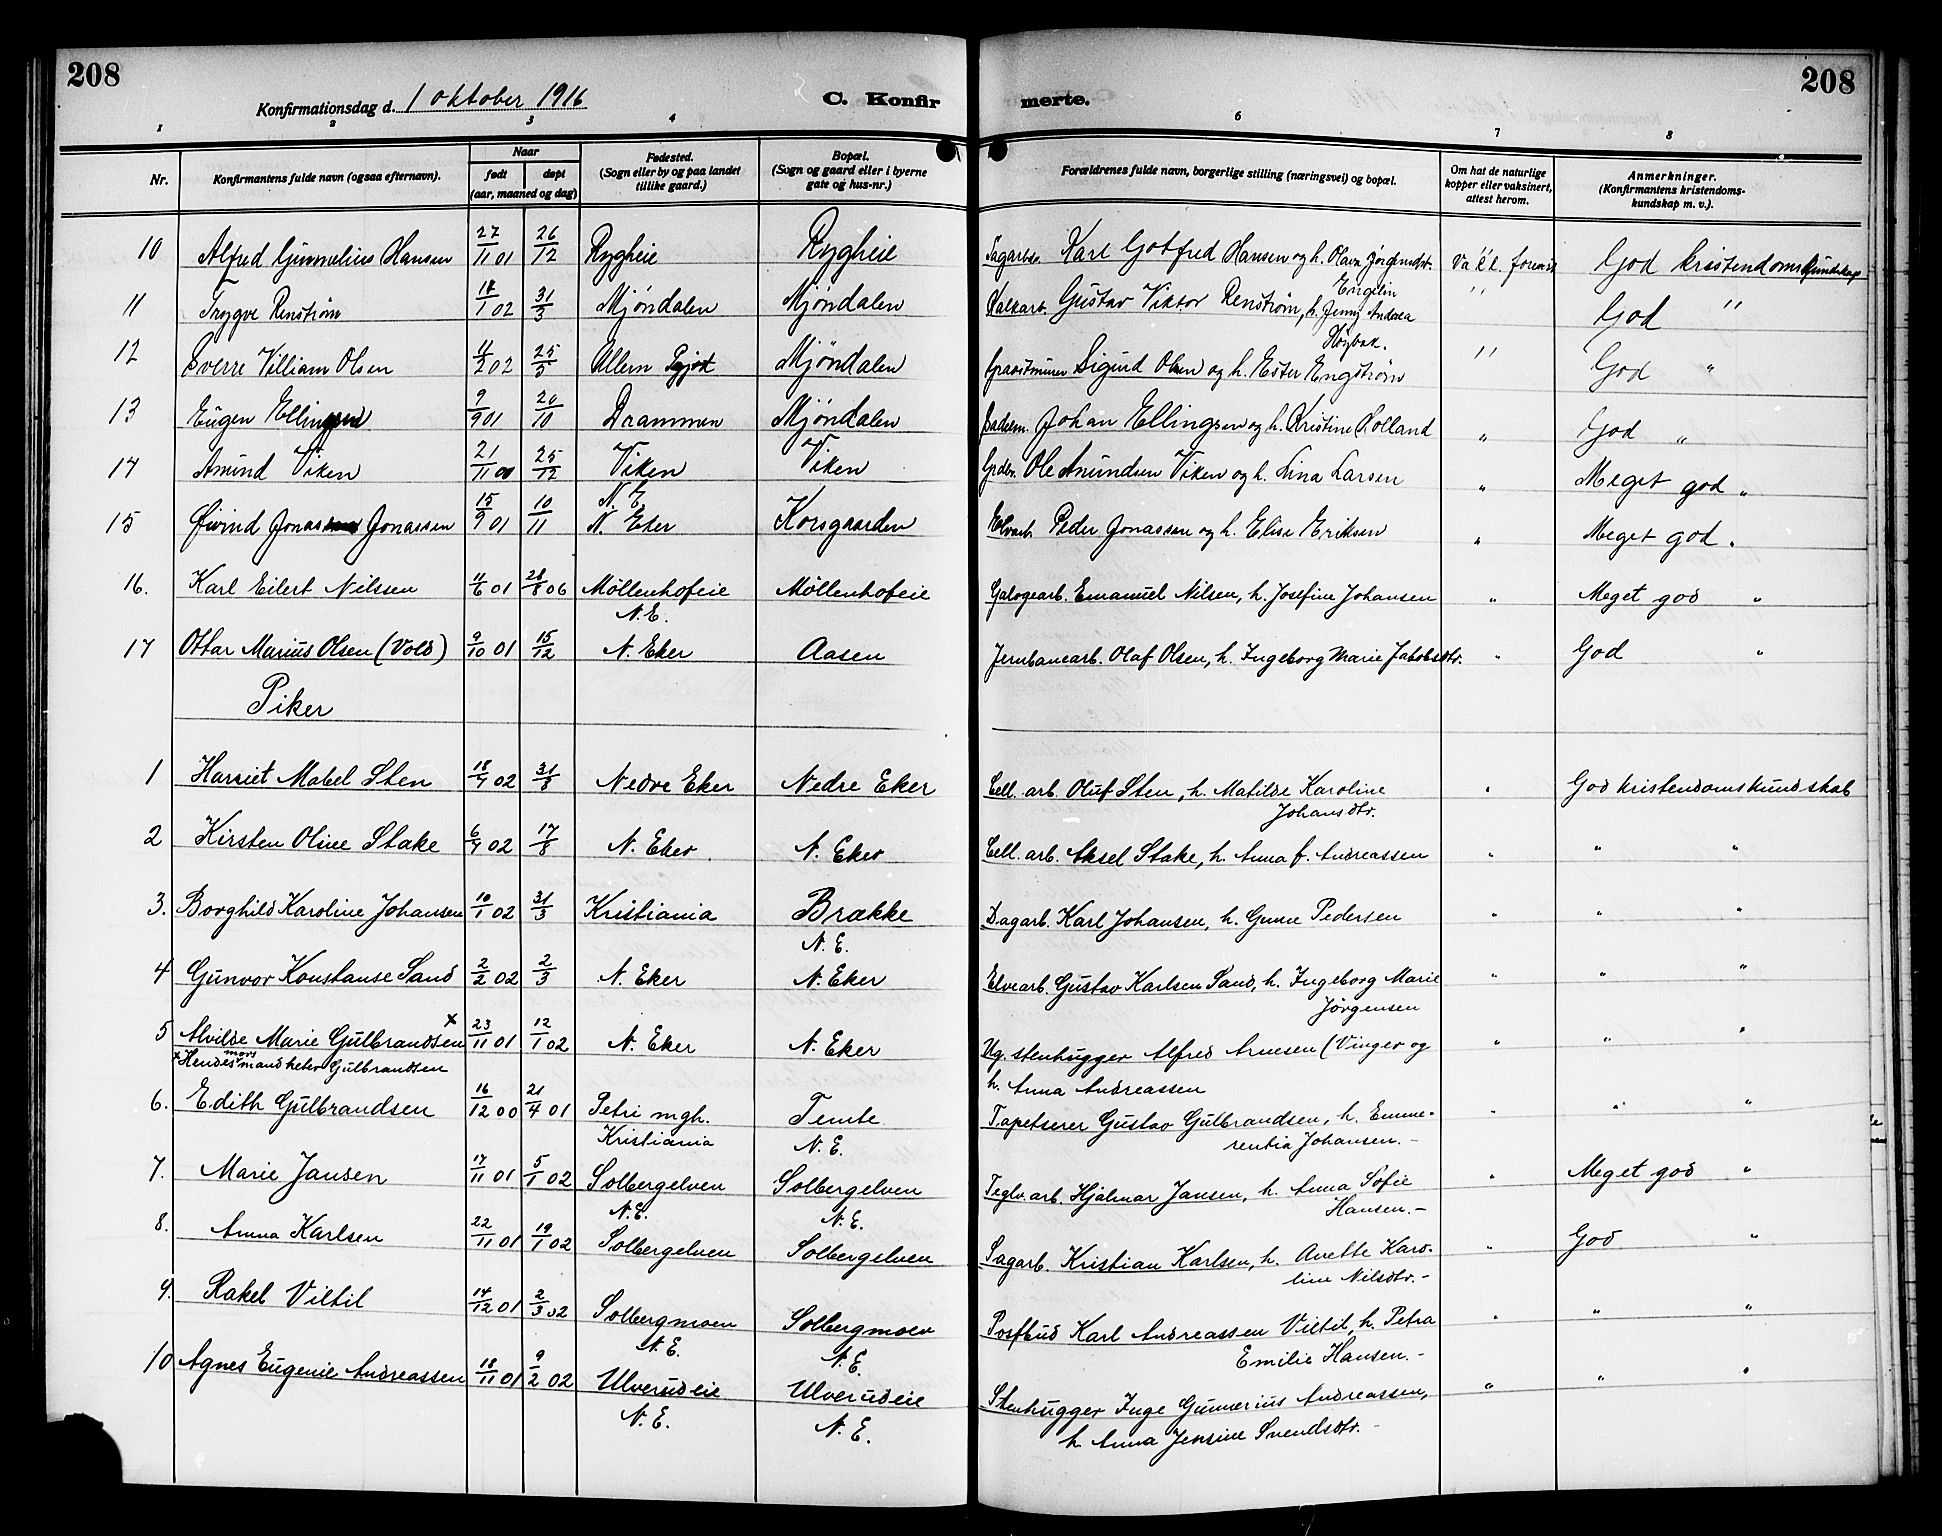 208
Konfirmationsdag d. 1 oktober 1916
C. Konfirmerte.
208
1 2 3 4 6 7 8
Nr. Konfirmantens fulde navn (ogsaa efternavn). Naar født døpt (aar, maaned og dag) Fødested. (Sogn eller by og paa landet tillike gaard.) Bopæl. (Sogn og gaard eller i byerne gate og hus-nr.) Forældrenes fulde navn, borgerlige stilling (næringsvei) og bopæl. Om hat de naturlige kopper eller vaksinert, attest herom. Anmerkninger. (Konfirmantens kristendoms-kundskap m. v.).
10 Alfred Gunnelius Hansen 27/11 01 26/12 Rygheie Rygheie Sagarb. Karl Gotfred Hansen og h. Olava Jörgensdtr. God kristendomskundskap
11 Trygve Renström 18/1 02 31/3 Mjöndalen Mjöndalen Valsearb. Gustav Viktor Renström, h. Jenny Andrea Engelin " God "
12 Sverre Villiam Olsen 11/2 02 25/5 Ullern Mjöndalen Sigurd Olsen og h. Ester Engström " God "
13 Eugen Ellingsen 9/9 01 20/10 Drammen Mjöndalen Johan Ellingsen og h. Kristine Holland " God "
14 Amund Viken 21/11 00 25/12 Viken N. E. Viken Grdbr. Ole Amundsen Viken og h. Lina Larsen " Meget god "
15 Øivind Jonassen 15/9 01 10/11 N. Eker Korsgaarden Elvearb. Peder Jonassen og h. Elise Eriksen " Meget god "
16. Karl Eilert Nilssen 11/6 01 28/8 06 Möllenhofeie N.E. Möllenhofeie Galogearb. Emanuel Nilsen, h. Josefine Johansen " Meget god "
17 Ottar Marius Olsen (Vold) 9/10 01 15/12 N. Eker Aasen Jernbanearb. Olaf Olsen, h. Ingeborg Marie Jakobsdtr. " God "
Piker
1 Harriet Mabel Sten 18/7 02 31/8 Nedre Eker Nedre Eker Cell. arb. Oluf Sten, h. Matilde Karoline Johansdtr. " God kristendomskundskab
2 Kirsten Oline Stake 6/7 02 17/8 N. Eker N. Eker Cell. arb. Aksel Stake, h. Anna f. Andreassen " " "
3. Borghild Karoline Johansen 10/1 02 31/3 Kristiania Brække N. E. Dagarb. Karl Johansen, h. Gunne Pedersen " " "
4 Gunvor Konstanse Sand 2/2 02 2/3 N. Eker N. Eker Elvearb. Gustav Karlsen Sand, h. Ingeborg Marie Jörgensen " " "
5 Alvilde Marie Gulbrandsen x 23/11 01 12/1 02 N. Eker N. Eker Ug. stenhugger Alfred Arnesen (Vinger og h. Anna Andreassen " " "
x Hendes mors mand heter Gulbrandsen
6. Edith Gulbrandsen 16/12 00 21/4 01 Petri mgh. Kristiania Temte N. E. Tapetserer Gustav Gulbrandsen, h. Emmerentia Johansen. - " " "
7. Marie Jansen 17/11 01 5/1 02 Solbergelven N.E. Solbergelven N. E. Teglv. arb. Hjalmar Jansen, h. Anna Sofie Hansen. - " Meget god "
8. Anna Karlsen 22/11 01 19/1 02 Solbergelven Solbergelven Sagarb. Kristian Karlsen, h. Anette Karoline Nilsdtr. - " God "
9. Rakel Viltil 14/12 01 2/3 02 Solbergmoen N. E. Solbergmoen N. E. Postbud Karl Andreassen Viltil, h. Petra Emilie Hansen. - " " "
10 Agnes Eugenie Andreassen 18/11 01 9/2 02 Ulverudeie N. E. Ulverudeie N. E. Stenhugger Inge Gunnerius Andreassen, h. Anna Jensine Svendsdtr. - " " "